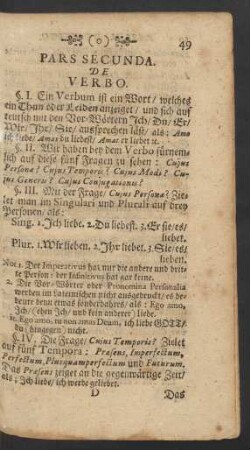 (o) 49
PARS SECUNDA.
DE
VERBO.
§. I. Ein Verbum ist ein Wort/ welches
ein Thun oder Leiden anzeiget/ und sich auf
teutsch mit den Vor-Wörtern Ich/ Du/ Er/
Wir/ Ihr/ Sie/ aussprechen läst/ als: Amo
ich liebe/ Amas du liebest/ Amat er liebet u.
§. II. Wir haben bey dem Verbo fürnem-
lich auf diese fünf Fragen zu sehen: Cujus
Personæ? Cujus Temporis? Cujus Modi? Cu-
jus Generis? Cujus Conjugationis?
§. III. Mit der Frage/ Cujus Personæ? Zie-
let man im Singulari und Plurali auf drey
Personen/ als:
Sing. 1. Ich liebe. 2. Du liebest. 3. Er sie/es/
liebet.
Plur. 1. Wir lieben. 2. Ihr liebet. 3. Sie/es/
lieben.
Not. 1. Der Imperativus hat nur die andere und drit-
te Person: der Infinitivus hat gar keine.
2. Die Vor-Wörter oder Pronomina Personalia
werden im Lateinischen nicht ausgedruckt/ es be-
deute denn etwas sonderbahres/ als: Ego amo,
Ich/ (eben Ich/ und kein anderer) liebe.
it. Ego amo, tu non amas Deum, ich liebe GOTT/
du (hingegen) nicht.
§. IV. Die Frage/ Cujus Temporis? Zielet
auf fünf Tempora: Præsens, Imperfectum,
Perfectum, Plusquamperfectum und Futurum.
Das Præsens zeiget an die gegenwärtige Zeit/
als; Ich liebe/ ich werde geliebet.
D Das